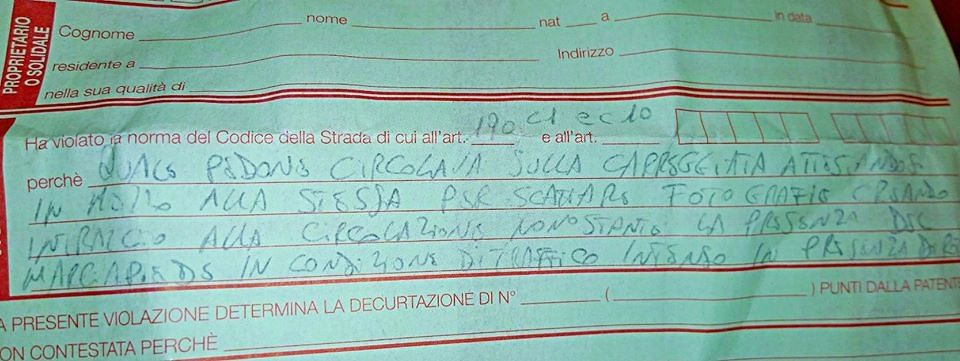 PROPRIETARIO
O SOLIDALE
Cognome nome nat a in data
residente a Indirizzo
nella sua qualità di
Ha violato la norma del Codice della Strada di cui all'art. 190 C1 e C10 e all'art.
perchè QUALE PEDONE CIRCOLAVA SULLA CARREGGIATA ATTESTANDOSI
IN MEZZO ALLA STESSA PER SCATTARE FOTOGRAFIE CREANDO
INTRALCIO ALLA CIRCOLAZIONE NONOSTANTE LA PRESENZA DEL
MARCIAPIEDE IN CONDIZIONE DI TRAFFICO INTENSO IN PRESENZA DI
A PRESENTE VIOLAZIONE DETERMINA LA DECURTAZIONE DI N° ( ) PUNTI DALLA PATENTE
ON CONTESTATA PERCHÈ